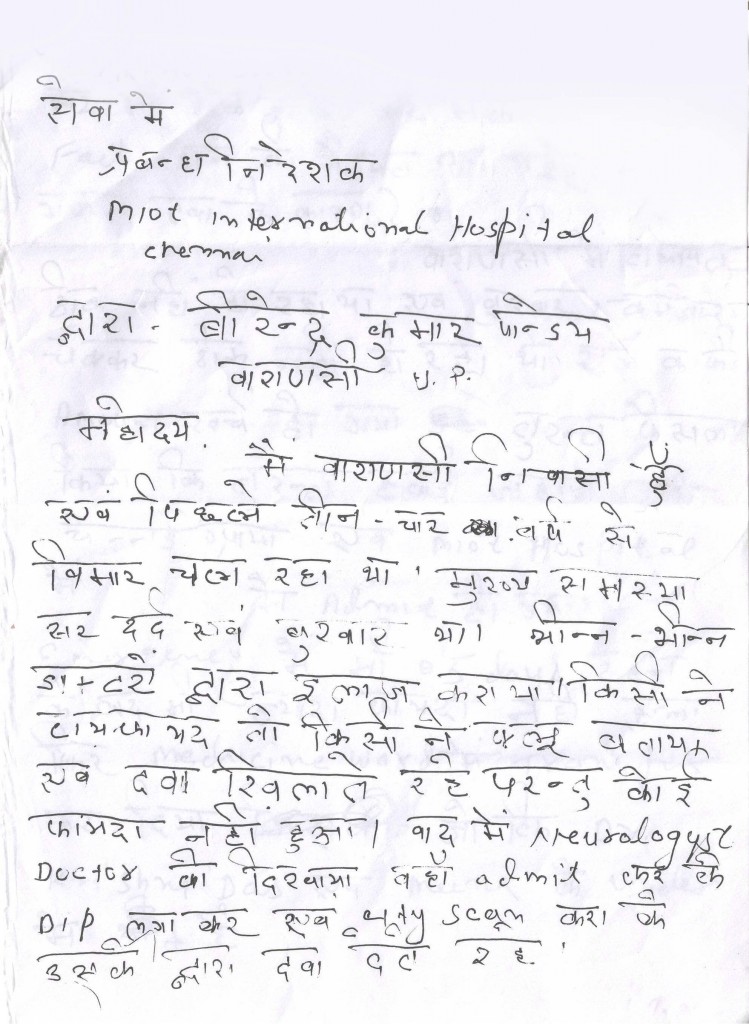 सेवा मे
प्रबन्धा निरेशक
Miot international Hospital
chennai
द्वारा - वीरेन्द्र कुमार पान्डेय
वाराणसी U.P.
महोदय.
मै वाराणसी निवासी हूँ
एवं पिछले तीन चार वर्ष से
विमार चल रहा था। मुख्य समस्या
सर दर्द एवं बुखार था। भीन्न-भीन्न
डाक्टरो द्वारा इलाज कराया। किसी ने
टायफायड तो किसी ने बताया
एवं दवा खिलाते रहे परन्तु कोई
फायदा नही हुआ। बाद मे Neurologyist
Doctor को दिखाया वहाँ admit करके
Dip लगा कर एवं scan करा के
उसके द्वारा दवा देते रहे.